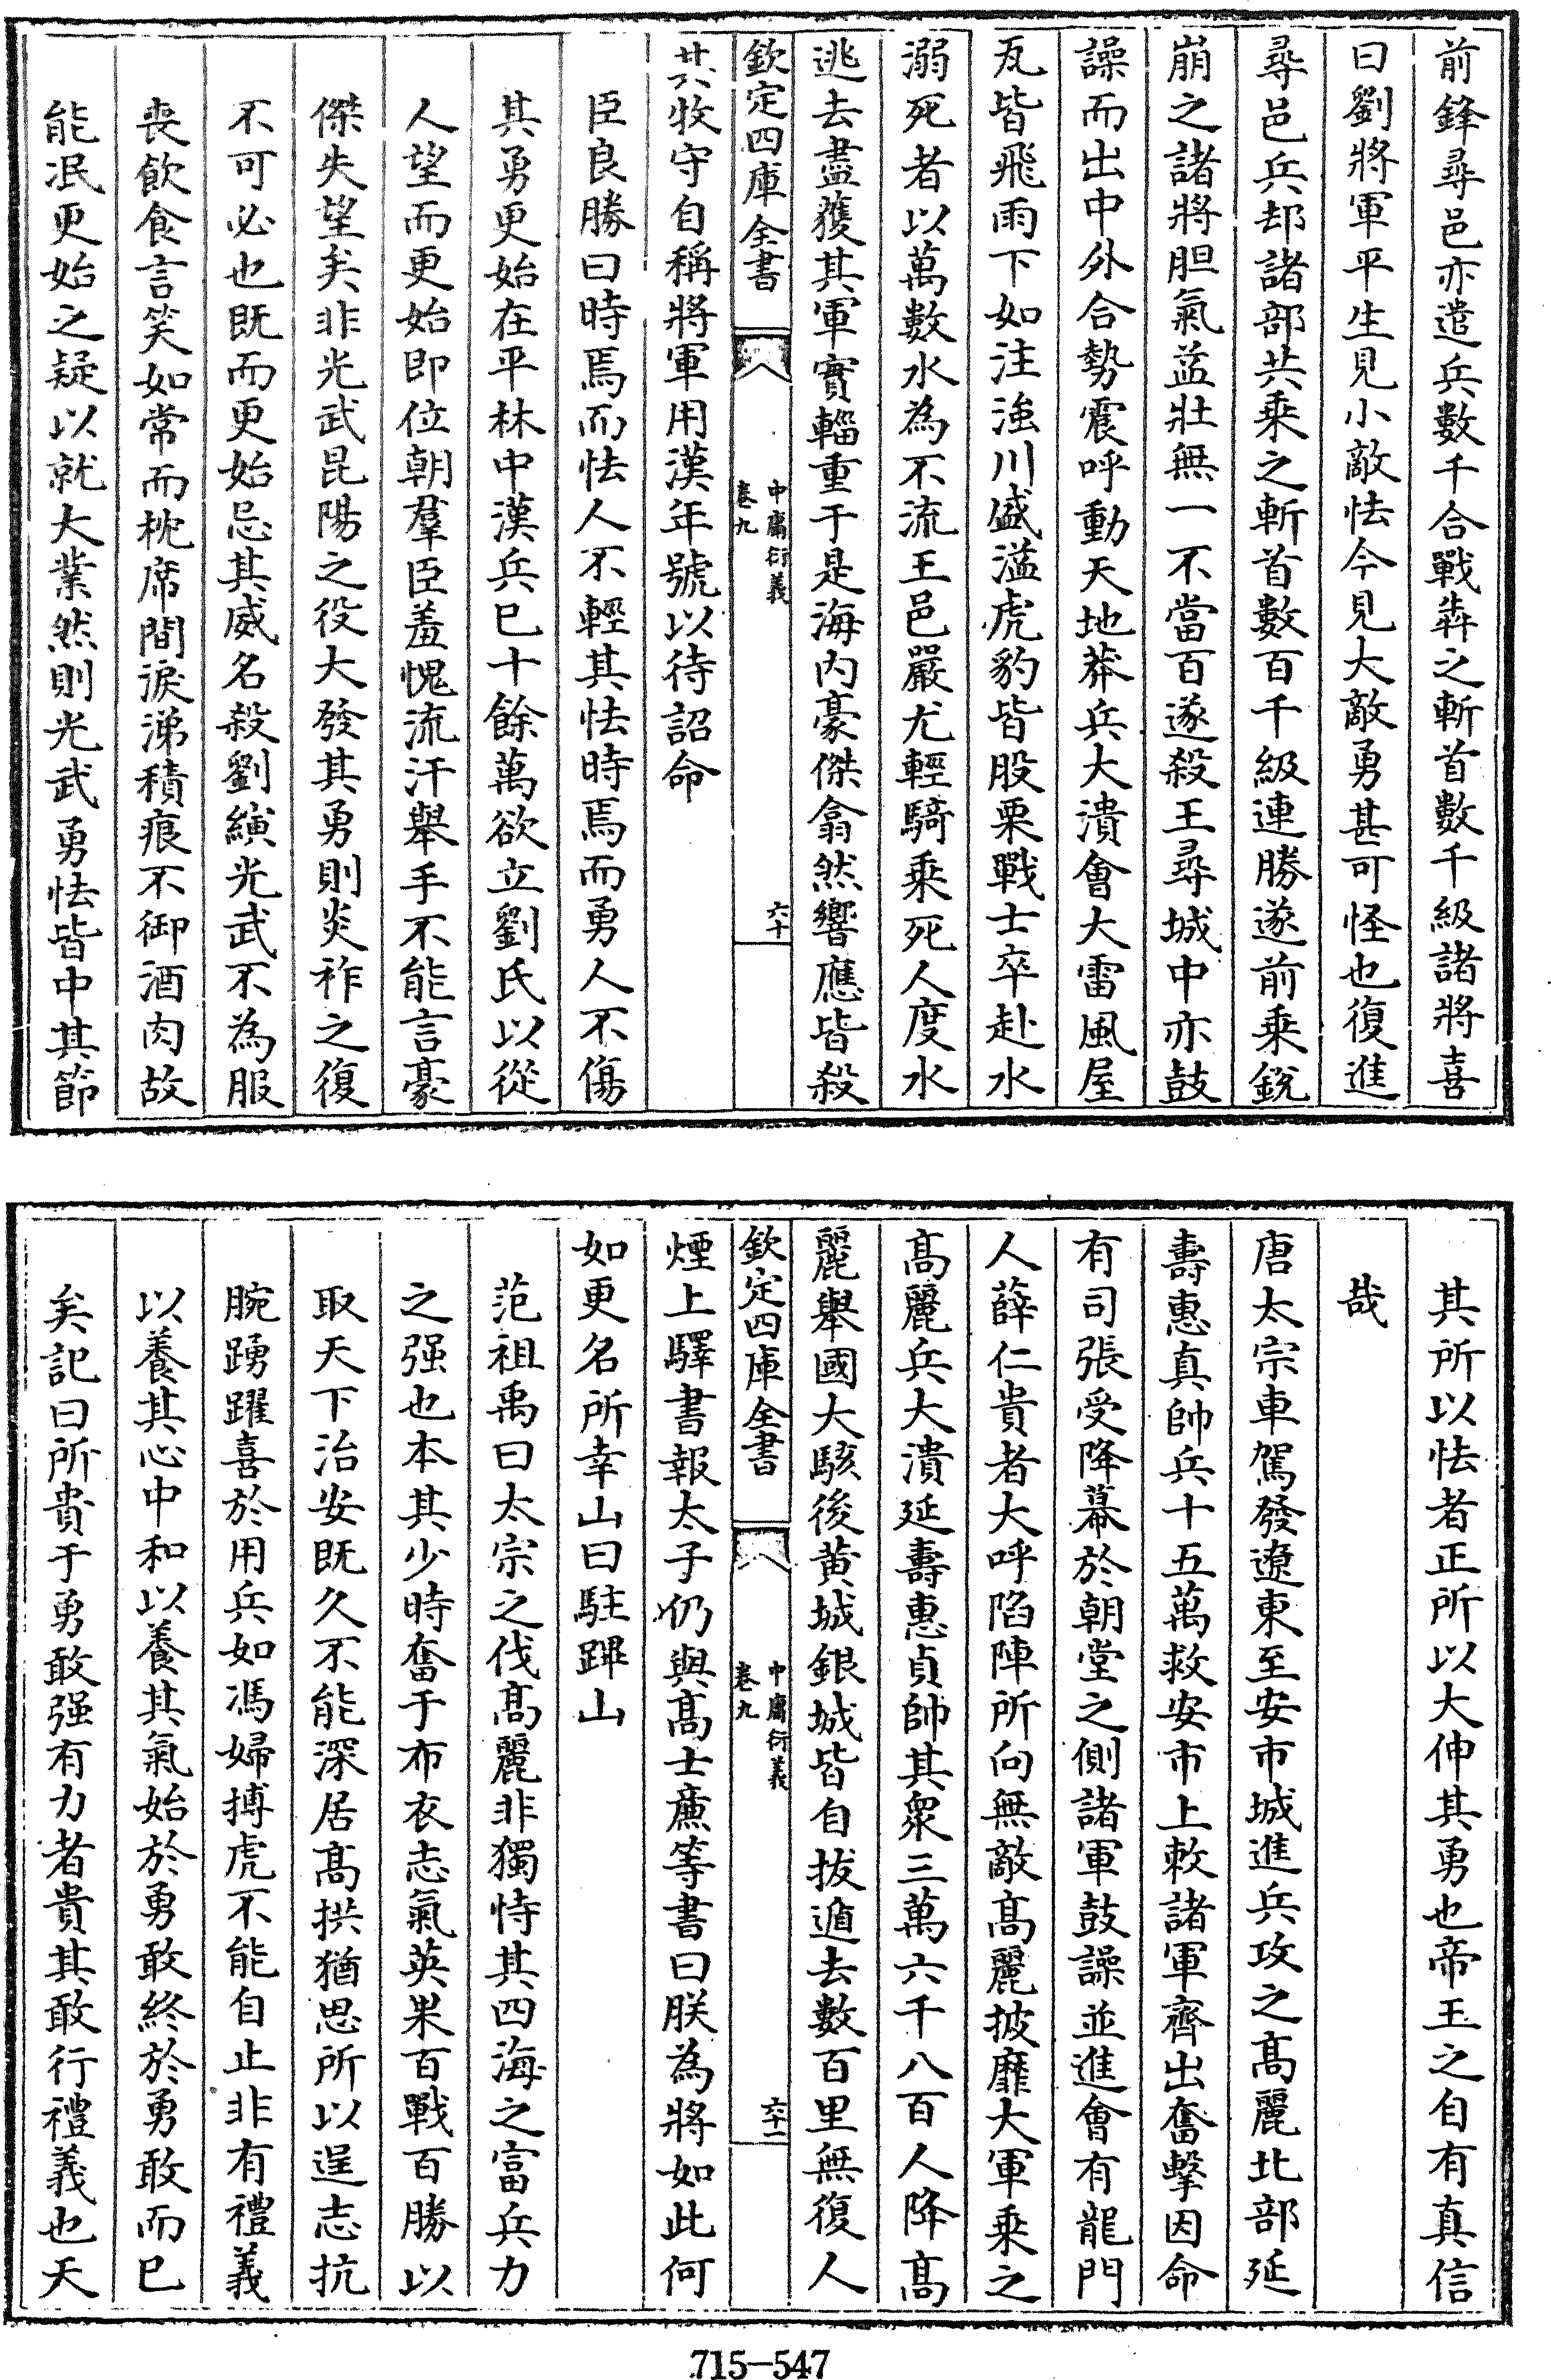 前鋒尋邑亦遣兵數千合戰犇之斬首數千級諸將喜
曰劉將軍平生見小敵怯今見大敵勇甚可怪也復進
尋邑兵却諸部共乘之斬首數百千級連勝遂前乘銳
崩之諸將胆氣益壯無一不當百遂殺王尋城中亦鼓
譟而出中外合勢震呼動天地莽兵大潰會大雷風屋
瓦皆飛雨下如注滍川盛溢虎豹皆股栗戰士卒赴水
溺死者以萬數水為不流王邑嚴尤輕騎乘死人度水
逃去盡獲其軍實輜重于是海内豪傑翕然響應皆殺
欽定四庫全書
中庸衍義
卷九
六十
其牧守自稱將軍用漢年號以待詔命
臣良勝曰時焉而怯人不輕其怯時焉而勇人不傷
其勇更始在平林中漢兵已十餘萬欲立劉氏以從
人望而更始即位朝羣臣羞愧流汗舉手不能言豪
傑失望矣非光武昆陽之役大發其勇則炎祚之復
不可必也既而更始忌其威名殺劉縯光武不為服
喪飲食言笑如常而枕席間淚涕積痕不御酒肉故
能泯更始之疑以就大業然則光武勇怯皆中其節
其所以怯者正所以大伸其勇也帝王之自有真信
哉
唐太宗車駕發遼東至安市城進兵攻之髙麗北部延
壽惠真帥兵十五萬救安市上敕諸軍齊出奮擊因命
有司張受降幕於朝堂之側諸軍鼓譟並進會有龍門
人薛仁貴者大呼陷陣所向無敵髙麗披靡大軍乘之
髙麗兵大潰延壽惠貞帥其衆三萬六千八百人降髙
麗舉國大駭後黄城銀城皆自拔遁去數百里無復人
欽定四庫全書
中庸衍義
卷九
六十一
煙上驛書報太子仍與髙士廉等書曰朕為將如此何
如更名所幸山曰駐蹕山
范祖禹曰太宗之伐髙麗非獨恃其四海之富兵力
之强也本其少時奮于布衣志氣英果百戰百勝以
取天下治安既久不能深居髙拱猶思所以逞志抗
腕踴躍喜於用兵如馮婦搏虎不能自止非有禮義
以養其心中和以養其氣始於勇敢終於勇敢而已
矣記曰所貴于勇敢强有力者貴其敢行禮義也天
715-547